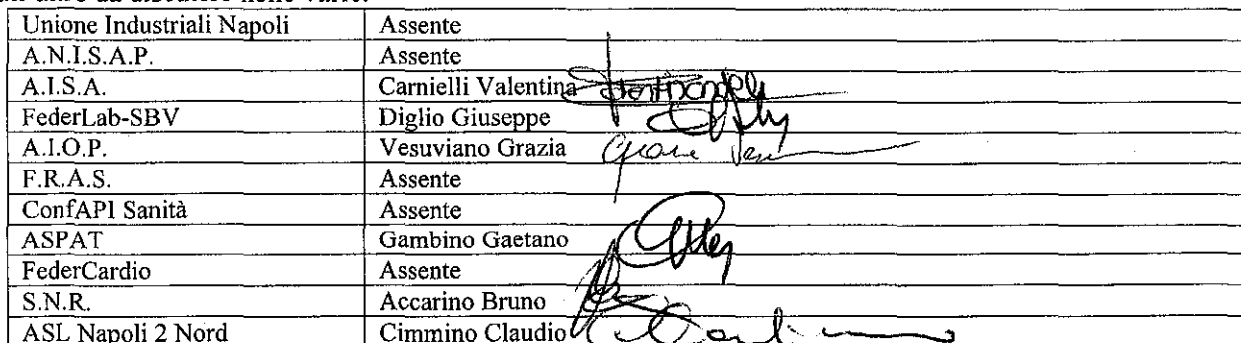 Unione Industriali Napoli Assente
A.N.I.S.A.P. Assente
A.I.S.A. Carnielli Valentina
FederLab-SBV Diglio Giuseppe
A.I.O.P. Vesuviano Grazia
F.R.A.S. Assente
ConfAPI Sanità Assente
ASPAT Gambino Gaetano
FederCardio Assente
S.N.R. Accarino Bruno
ASL Napoli 2 Nord Cimmino Claudio